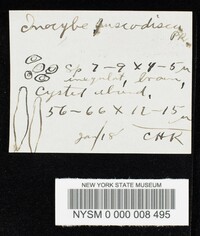 Inocybe fuscodisca
Pk.
Sp 7-9 x 4-5 µ
irregular, brown,
Cystid abund,
56-66 x 12-15 µ
CHK
NEW YORK STATE MUSEUM
NYSM 0 000 008 495